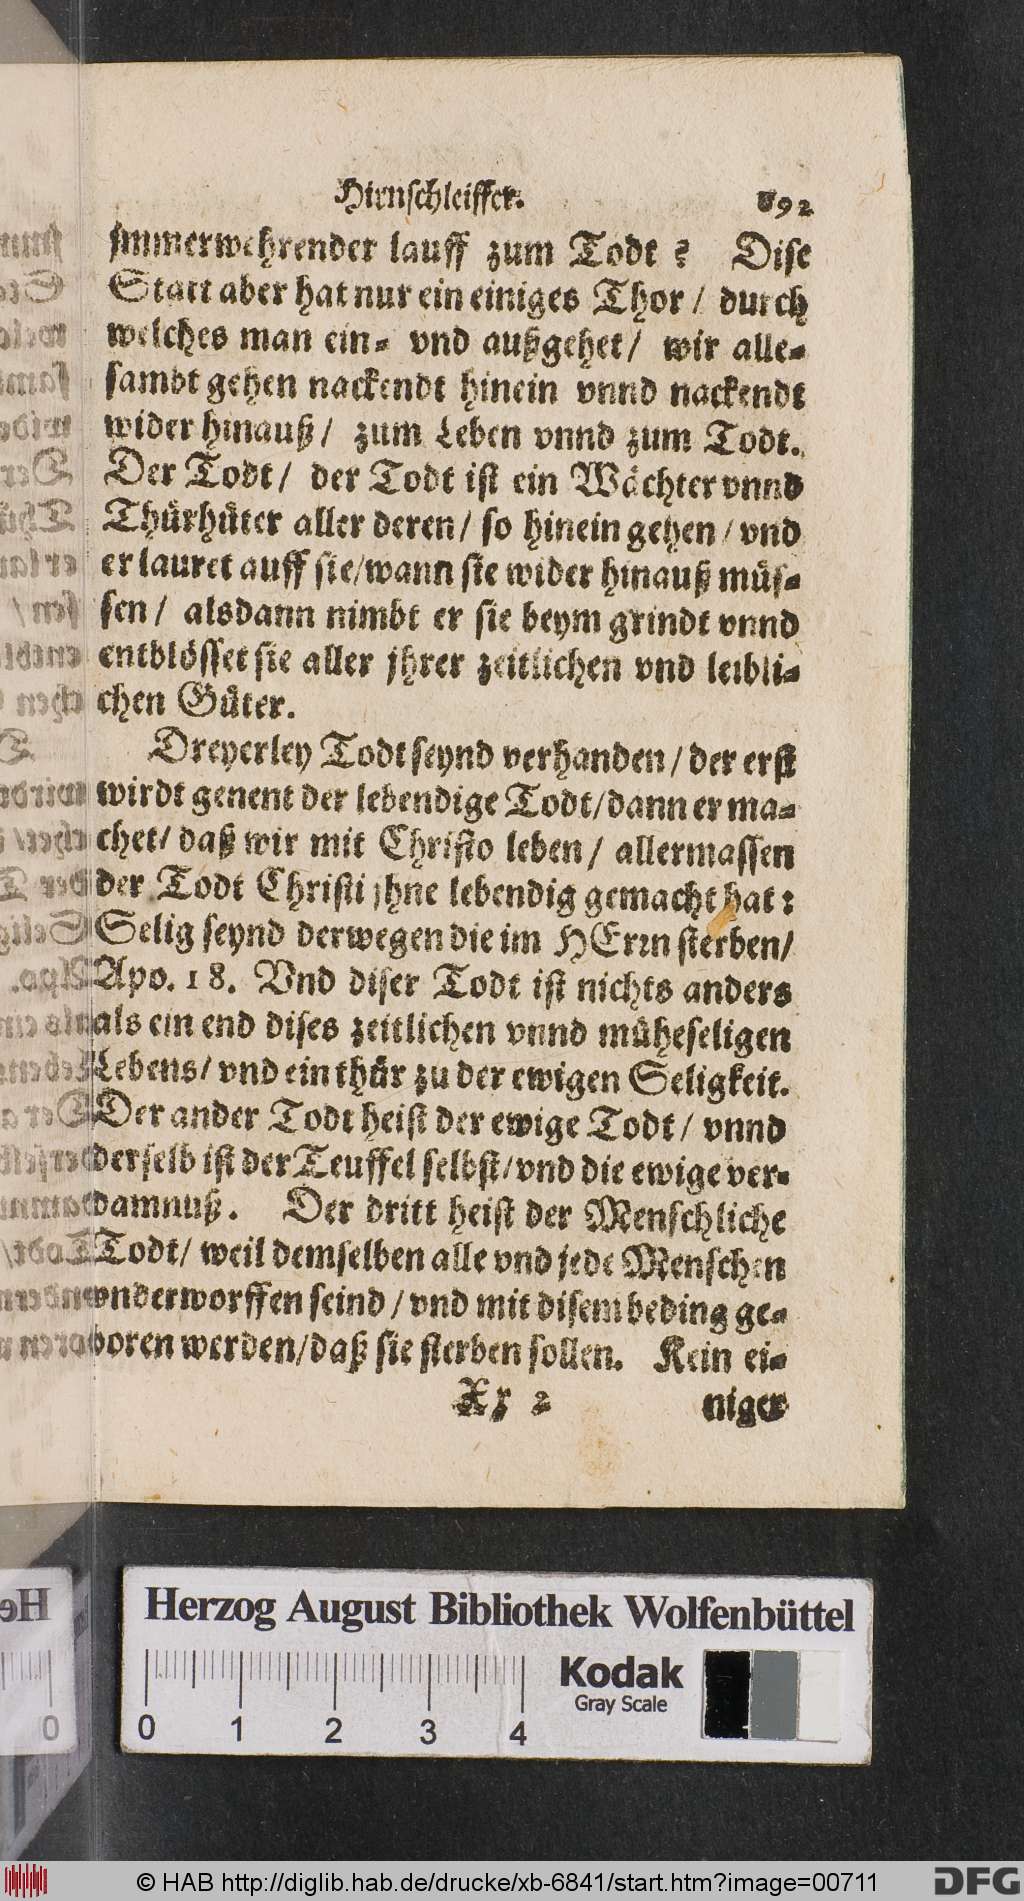 Hirnschleiffer. 692
jmmerwehrender lauff zum Todt? Dise
Statt aber hat nur ein einiges Thor / durch
welches man ein- vnd außgehet / wir alle-
sambt gehen nackendt hinein vnnd nackendt
wider hinauß / zum Leben vnnd zum Todt.
Der Todt / der Todt ist ein Wächter vnnd
Thürhüter aller deren / so hinein gehen / vnd
er lauret auff sie / wann sie wider hinauß müs-
sen / alsdann nimbt er sie beym grindt vnnd
entblösset sie aller jhrer zeitlichen vnd leibli-
chen Güter.
Dreyerley Todt seynd verhanden / der erst
wirdt genent der lebendige Todt / dann er ma-
chet / daß wir mit Christo leben / allermassen
der Todt Christi jhne lebendig gemacht hat:
Selig seynd derwegen die im HErrn sterben /
Apo. 18. Vnd diser Todt ist nichts anders
als ein end dises zeitlichen vnnd müheseligen
Lebens / vnd ein thür zu der ewigen Seligkeit.
Der ander Todt heist der ewige Todt / vnnd
derselb ist der Teuffel selbst / vnd die ewige ver-
damnuß. Der dritt heist der Menschliche
Todt / weil demselben alle vnd jede Menschen
vnderworffen seind / vnd mit disem beding ge-
boren werden / daß sie sterben sollen. Kein ei-
Xx 2 niger
Herzog August Bibliothek Wolfenbüttel
Kodak
Gray Scale
0 1 2 3 4
© HAB http://diglib.hab.de/drucke/xb-6841/start.htm?image=00711
DFG